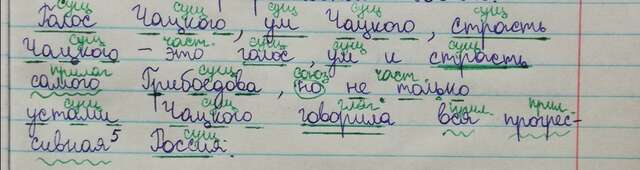 сущ сущ сущ сущ сущ
Голос Чацкого, ум Чацкого, страсть
сущ част. сущ сущ сущ
Чацкого – это голос, ум и страсть
прилаг сущ союз част
самого Грибоедова, но не только
сущ сущ глаг прил. прил.
устами Чацкого говорила вся прогрес-
сущ
сивная⁵ Россия.